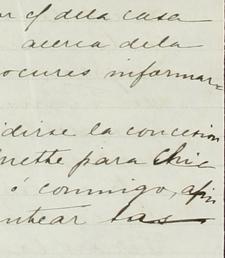 cf dela casa
acerca dela
ocures informar=
dirse la concesion
nette para Chic
ó conmigo, afin
untear las